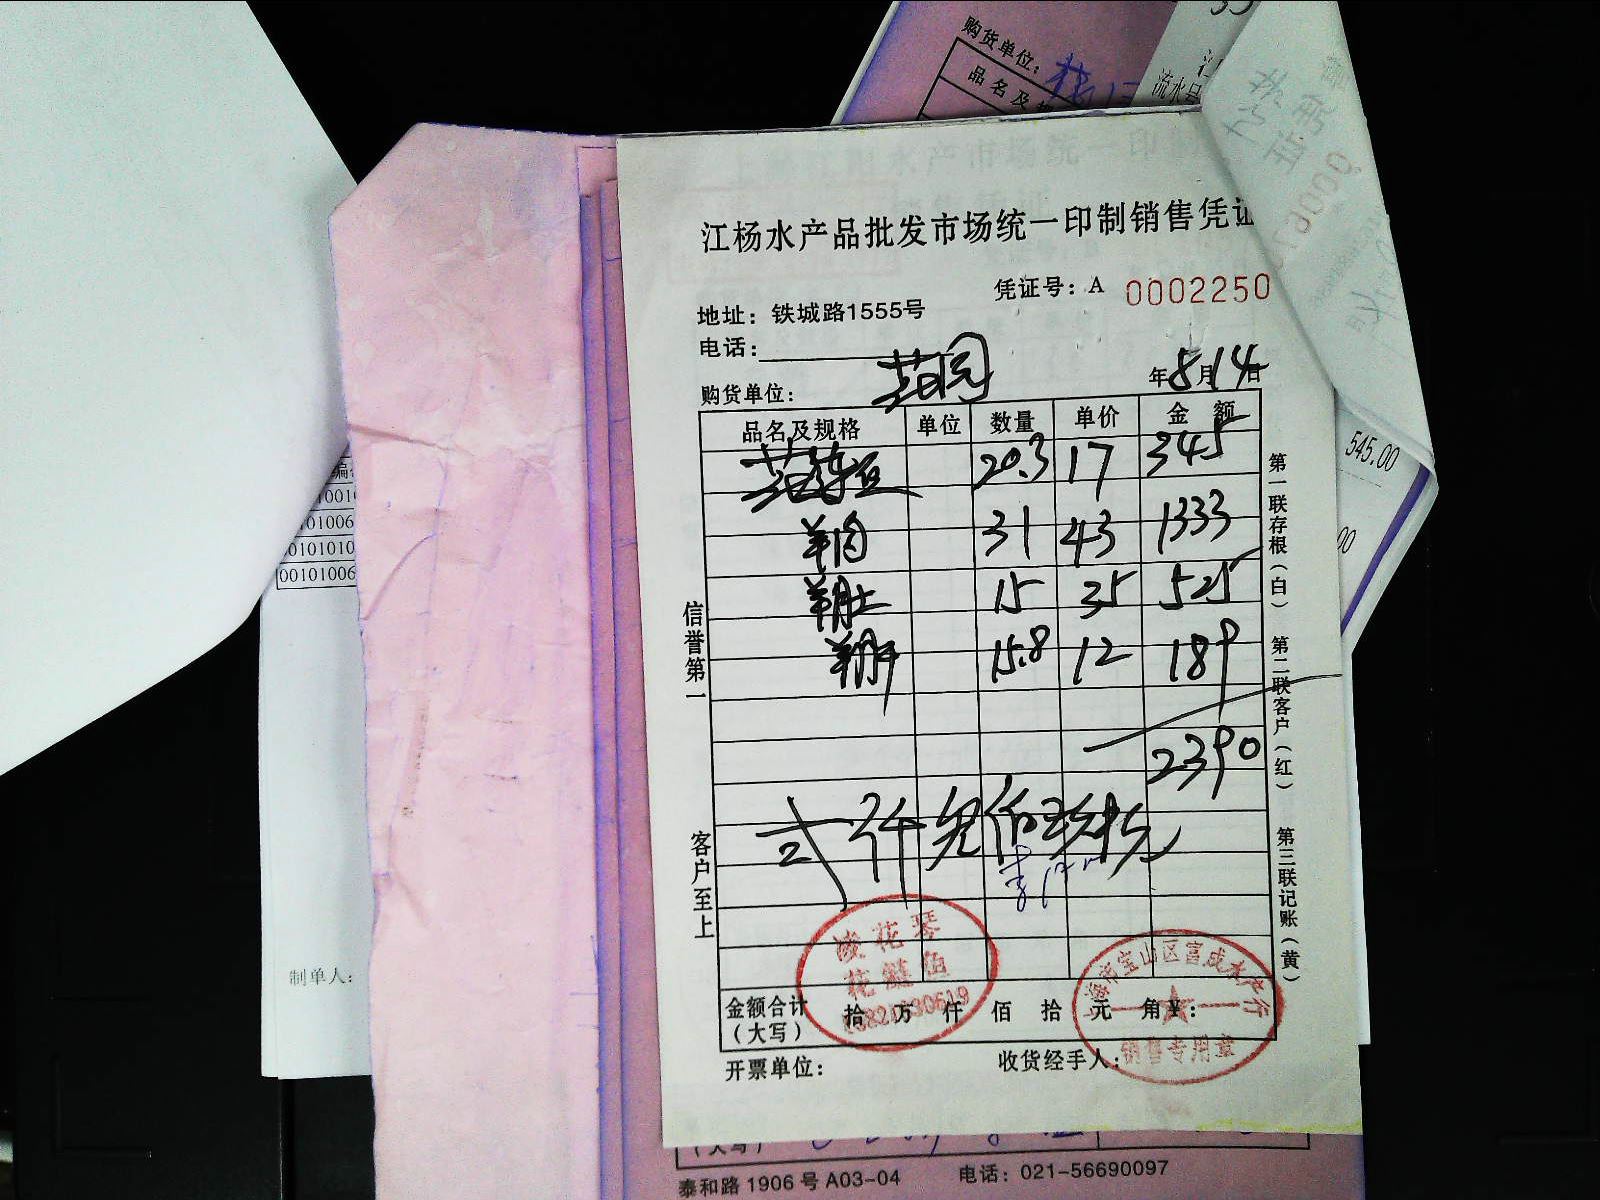 购货单位：
品名及规
流水号
545.00
00
00101006
制单人：
江杨水产品批发市场统一印制销售凭证
凭证号：A 0002250
地址：铁城路1555号
电话：
购货单位：
年8月14日
品名及规格 单位 数量 单价 金额
20.3 17 345
羊肉 31 43 1333
羊肚 15 35 525
羊肝 15.8 12 189
2390
信誉第一
客户至上
第一联存根（白） 第二联客户（红） 第三联记账（黄）
凌花琴
花鲢鱼
上海市宝山区富成水产行
销售专用章
金额合计（大写） 拾 万 仟 佰 拾 元 角 ¥：
开票单位： 收货经手人：
（大写）
泰和路1906号A03-04 电话：021-56690097